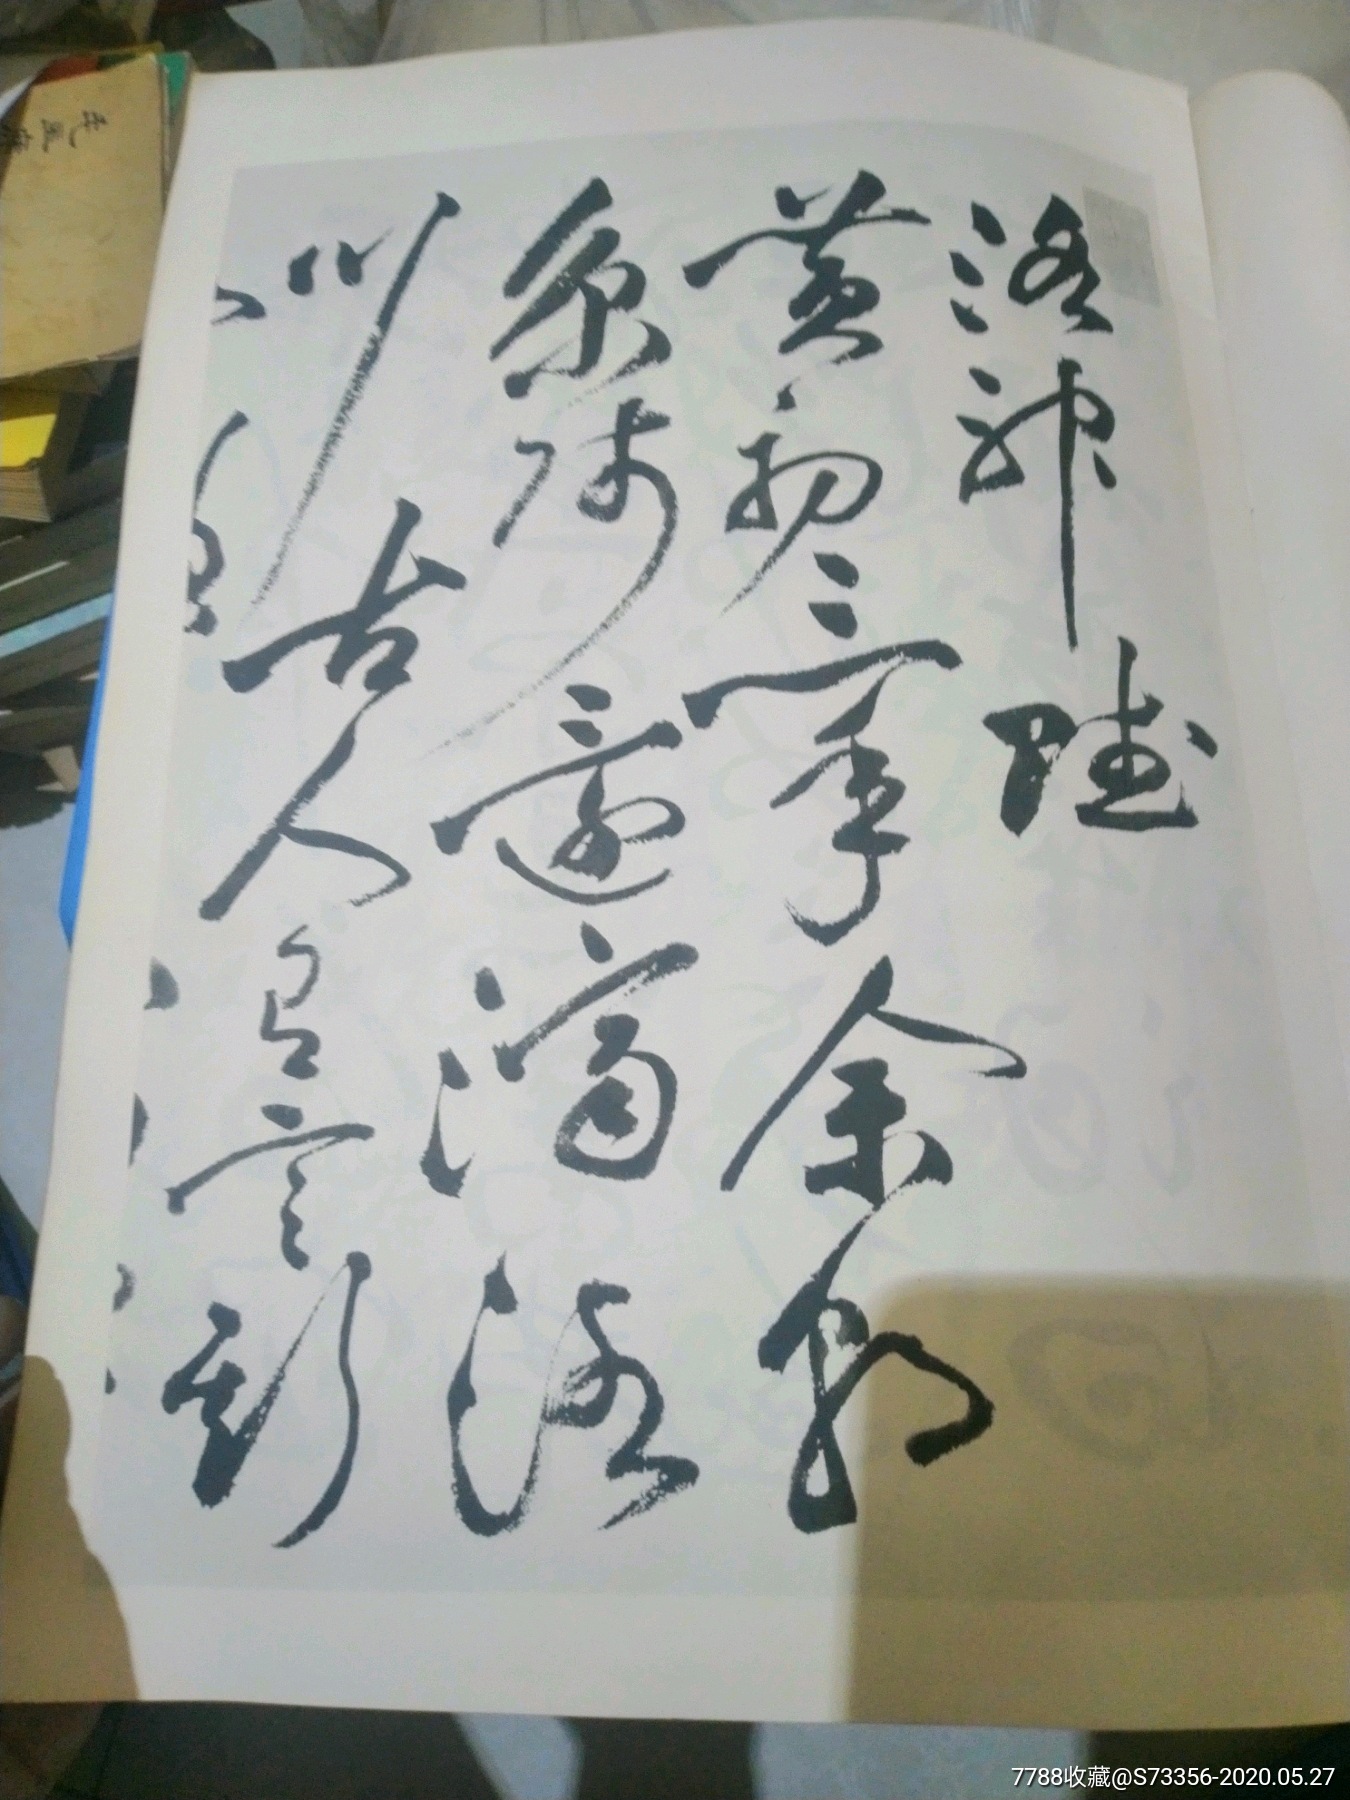 洛神賦
黄初三年余朝
京師還濟洛
川古人有言斯
7788收藏@S73356-2020.05.27